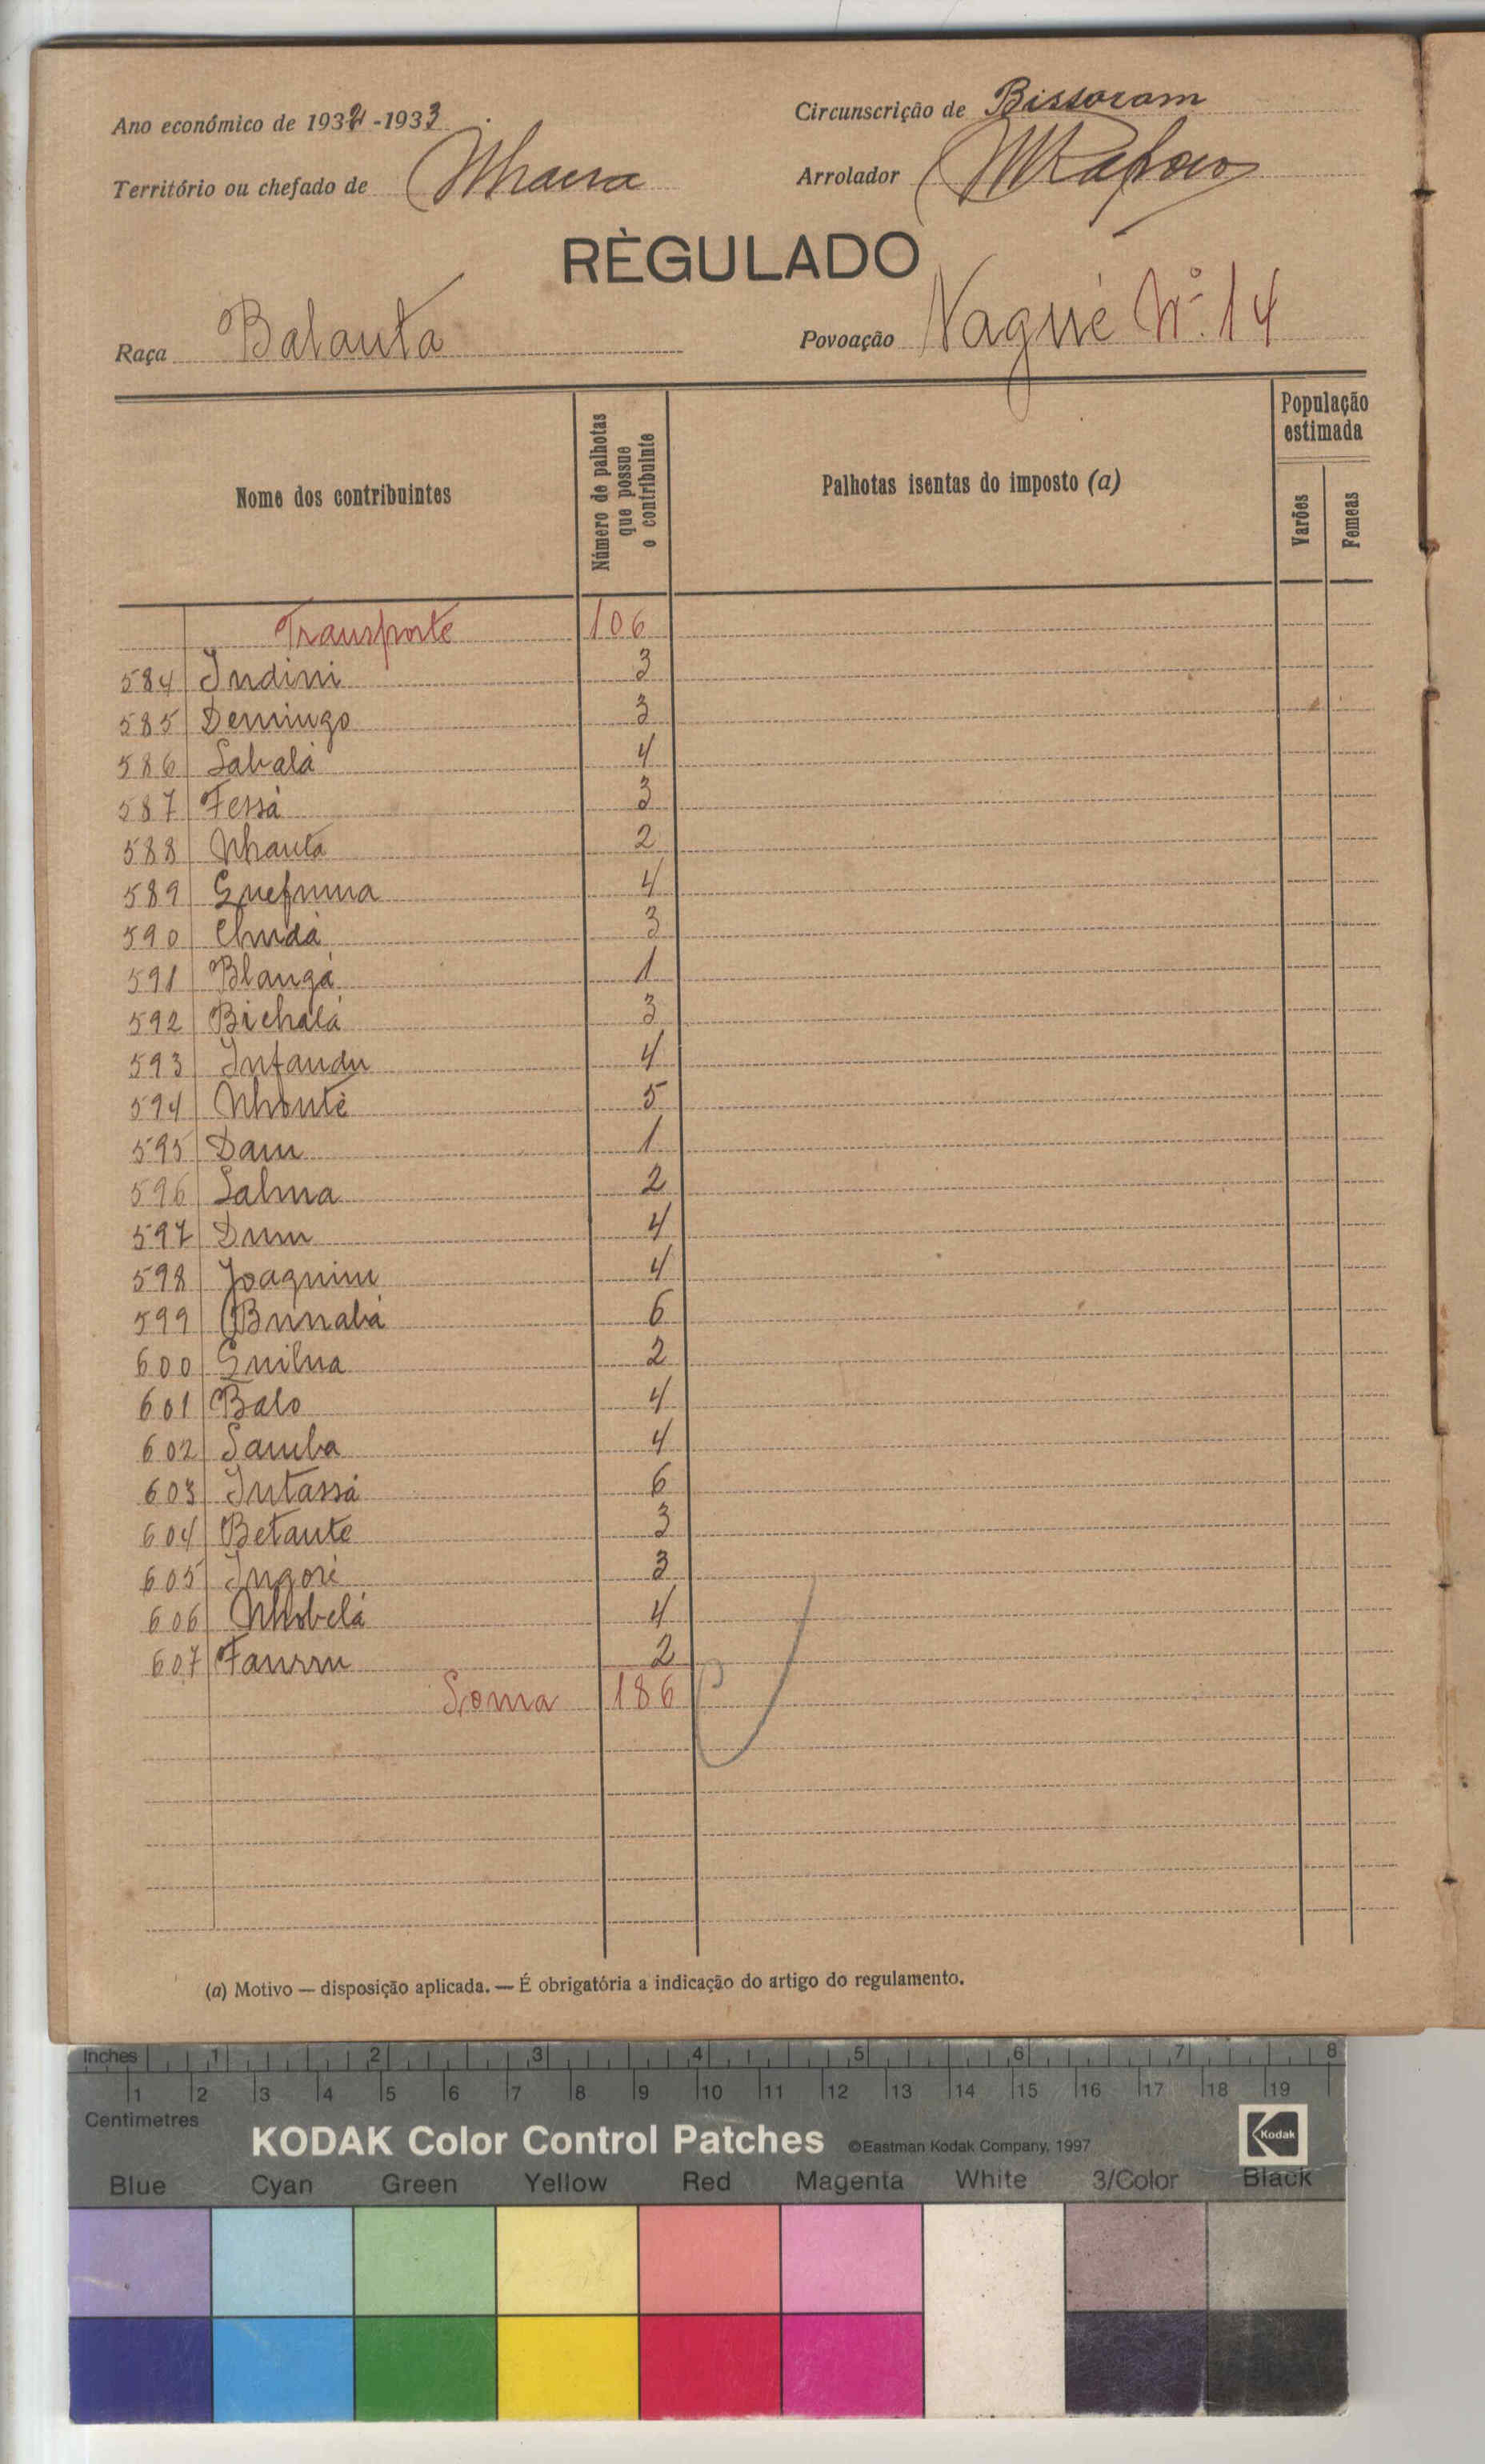 Ano económico de 1932-1933.
Circunscrição de Bissoram
Território ou chefado de Nhaera
Arrolador
RÈGULADO
Raça Balanta
Povoação Nagué Nº 14
Nome dos contribuintes
Número de palhotas que possue o contribuinte
Palhotas isentas do imposto (a)
População estimada
Varões
Femeas
Transporte 106
584 Indini 3
585 Demingo 3
586 Sabalá 4
587 Fessá 3
588 Nhanta 2
589 Quefunna 4
590 Chudá 3
591 Blangá 1
592 Bichalá 3
593 Infandu 4
594 Nhonté 5
595 Dam 1
596 Salma 2
597 Dum 4
598 Joaquim 4
599 Bunabá 6
600 Quilna 2
601 Balo 4
602 Samba 4
603 Intassá 6
604 Betante 3
605 Ingoré 3
606 Nhobelá 4
607 Fanrru 2
Soma 186
(a) Motivo — disposição aplicada. — É obrigatória a indicação do artigo do regulamento.
Inches 1 2 3 4 5 6 7 8
1 2 3 4 5 6 7 8 9 10 11 12 13 14 15 16 17 18 19
Centimetres
KODAK Color Control Patches ©Eastman Kodak Company, 1997 Kodak
Blue Cyan Green Yellow Red Magenta White 3/Color Black